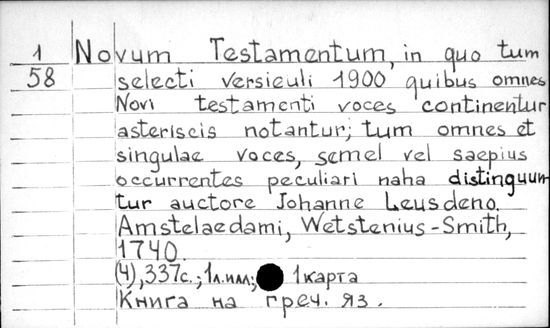 1 Novum Testamentum, in quo tum
58 selecti versieuli 1900 quibus omnes
Novi testamenti voces continentur
asteriscis notantur; tum omnes et
singulae voces, semel vel saepius
occurrentes peculiari naha distinguun
tur auctore Johanne Leusdeno.
Amstelaedami, Wetstenius-Smith,
1740.
(4),337с.; 1л.илл; 1 карта
Книга на греч. яз.